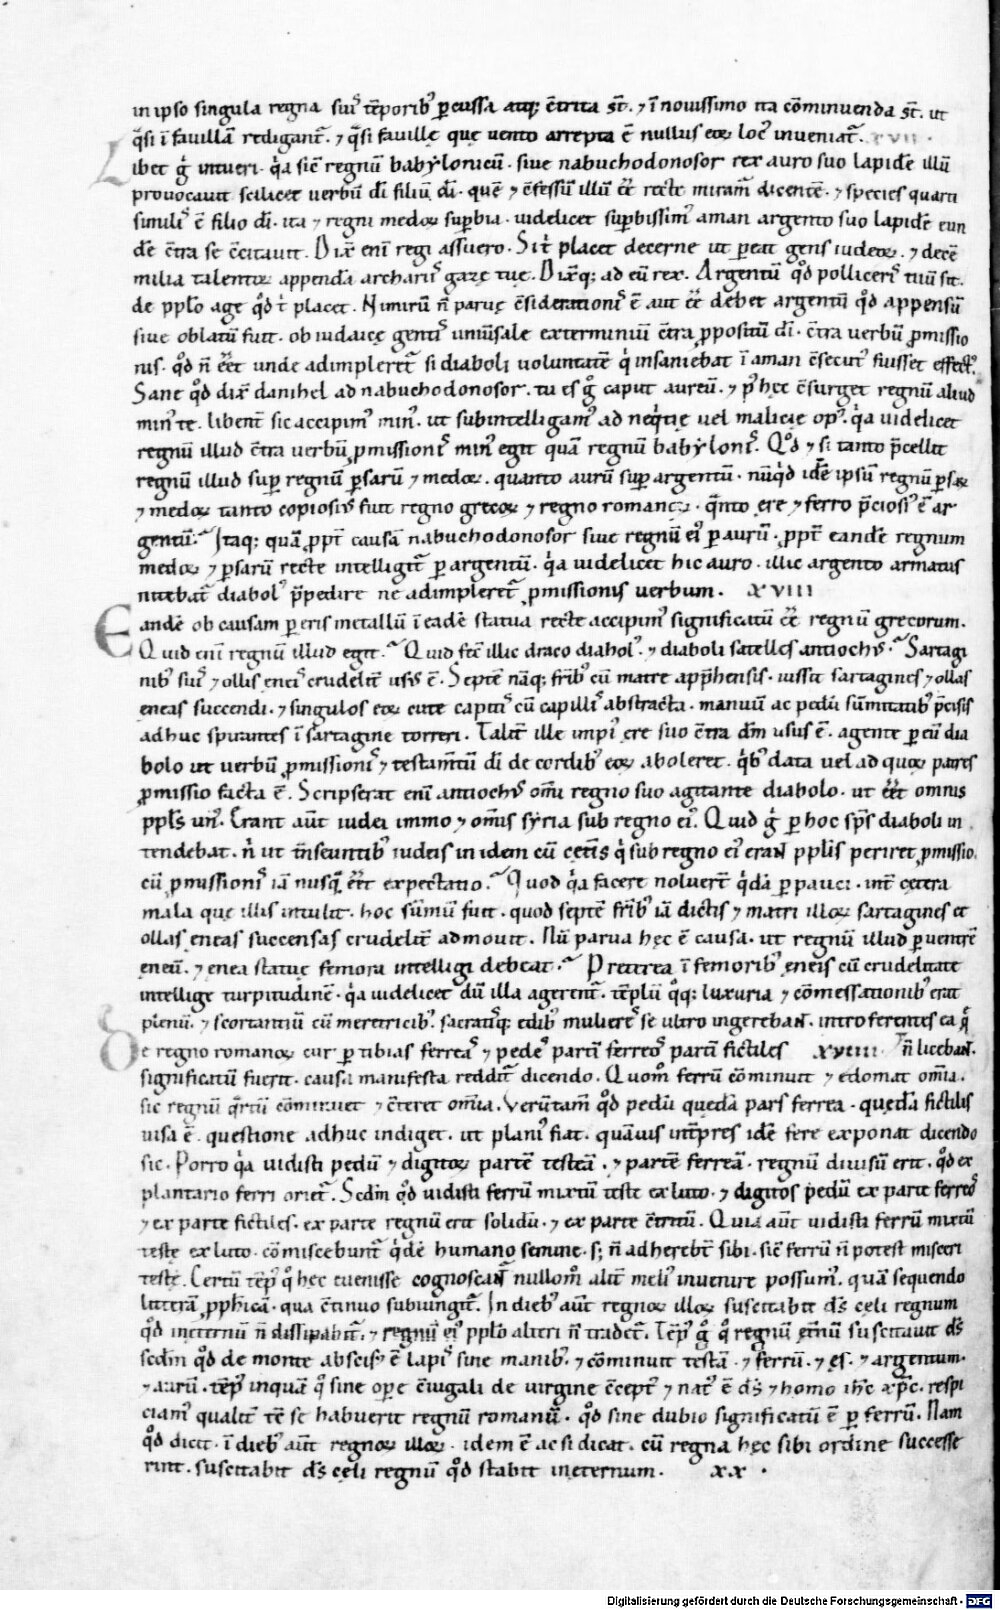 in ipso singula regna suis tēporib; ꝑcussa atq; ꝯtrita st̄. ⁊ ī novissimo ita cōminuenda st̄. ut
q̄si ī favillā redigant̄. ⁊ q̄si favillę quę vento arrepta ē nullus eoꝝ loc᷒ inveniat̄. XVII.
Libet g̊ intueri. qͥa sic̄ regnū babylonicū. sive nabuchodonosor rex auro suo lapidē illū
provocavit scilicet verbū dī filiū dī. quē ⁊ ꝯfessū illū eē̄ recte miram̄ dicentē. ⁊ species quarti
simil᷒ ē filio dī. ita ⁊ regni medoꝝ suꝑbia. videlicet suꝑbissim᷒ aman argento suo lapidē eun
dē ꝯtra se ꝯcitavit. Dix̄ eni regi assuero. Si tͥ placet decerne ut ꝑeat gens iudeoꝝ. ⁊ decē
milia talentoꝝ appendā archariis gazę tuę. Dix̄q; ad eū rex. Argentū qͦd polliceris tuū sit.
de pplo age qͦd tͥ placet. Nimirū n̄ parvę ꝯsiderationis ē aut eē̄ debet argentū qͦd appensū
sive oblatū fuit. ob iudaicę gentis univsale exterminiū ꝯtra ꝓpositū dī. ꝯtra verbū ꝓmissio
nis. qͦd n̄ eēt unde adimpleret̄ si diaboli voluntatē qͥ insaniebat ī aman ꝯsecut᷒ fuisset effect᷒.
Sane qͦd dix̄ danihel ad nabuchodonosor. tu es g̊ caput aureū. ⁊ p᷒ hęc ꝯsurget regnū aliud
min᷒ te. libent̄ sic accipim᷒ min᷒. ut subintelligam᷒ ad neqͥtię vel malicię op᷒. qͥa videlicet
regnū illud ꝯtra verbū ꝓmissionis min᷒ egit quā regnū babylonis. Qͦd ⁊ si tanto p̄cellit
regnū illud suꝑ regnū ꝑsarū ⁊ medoꝝ. quanto aurū suꝑ argentū. nūqͥd idē ipsū regnū ꝑsaꝝ
⁊ medoꝝ tanto copiosi᷒ fuit regno grecoꝝ ⁊ regno romanoꝝ. qͣnto ęre ⁊ ferro p̄ciosi᷒ ē ar
gentū. Itaq; quā ꝓpt̄ causā nabuchodonosor sive regnū ei᷒ ꝑ aurū. ꝓpt̄ eandē regnum
medoꝝ ⁊ ꝑsarū recte intelligit̄ ꝑ argentū. qͥa videlicet hic auro. illic argento armatus
nitebat̄ diabol᷒ p̄pedire ne adimpleret̄ ꝓmissionis verbum. XVIII
Eandē ob causam ꝑ eris metallū ī eadē statua recte accipim᷒ significatū eē̄ regnū grecorum.
Quid eni regnū illud egit. Quid fec̄ illic draco diabol᷒. ⁊ diaboli satelles antioch᷒. Sartagi
nib᷒ suis ⁊ ollis ęneis crudelit̄ us᷒ ē. Septē nāq; fr̄ib᷒ cū matre app̄hensis. iussit sartagines ⁊ ollas
eneas succendi. ⁊ singulos eoꝝ cute capitis cū capillis abstracta. manuū ac pedū sūmitatib᷒ p̄cisis
adhuc spirantes ī sartagine torreri. Talit̄ ille impi᷒ ere suo ꝯtra dm̄ usus ē. agente ꝑ eū dia
bolo ut verbū ꝓmissionis ⁊ testam̄tū dī de cordib᷒ eoꝝ aboleret. qͥb᷒ data vel ad quoꝝ patres
ꝓmissio facta ē. Scripserat eni antioch᷒ omi regno suo agitante diabolo. ut eēt omnis
ppl̄s un᷒. Erant aūt iudei immo ⁊ omis syria sub regno ei᷒. Quid g̊ ꝑ hoc sp̄s diaboli in
tendebat. n̄ ut t̄nseuntib᷒ iudeis in idem cū cęteris qͥ sub regno ei᷒ erant pplis periret ꝓmissio.
cū ꝓmissionis iā nusqͣ eēt expectatio. Quod qͥa facere noluert̄ qͥdā ꝑpauci. int̄ cętera
mala quę illis intulit. hoc sūmū fuit. quod septē fr̄ib᷒ iā dictis ⁊ matri illoꝝ sartagines et
ollas ęneas succensas crudelit̄ admovit. Nū parva hęc ē causa. ut regnū illud ꝑ ventrē
ęneū. ⁊ ęnea statuę femora intelligi debeat. Preterea ī femorib᷒ ęneis cū crudelitate
intellige turpitudinē. qͥa videlicet dū illa agerent̄. tēplū qͦq; luxuria ⁊ cōmessationib᷒ erat
plenū. ⁊ scortantiū cū meretricib᷒. sacratisq; edib᷒ mulieres se ultro ingerebant. intro ferentes ea qͣ
De regno romanoꝝ cur ꝑ tibias ferreas ⁊ pedes partī ferreos partī fictiles XVIIII. n̄ licebant.
significatū fuerit. causa manifesta reddit̄ dicendo. Quom᷒ ferrū cōminuit ⁊ edomat omīa.
sic regnū qͣrtū cōminuet ⁊ ꝯteret omīa. Verūtam̄ qͦd pedū quędā pars ferrea. quędā fictilis
visa ē. questione adhuc indiget. ut plani᷒ fiat. quāvis int̄pres idē fere exponat dicendo
sic. Porro qͥa vidisti pedū ⁊ digitoꝝ partē testeā. ⁊ partē ferreā. regnū divisū erit. qͦd ex
plantario ferri oriet̄. Scdm̄ qͦd vidisti ferrū mixtū teste ex luto. ⁊ digitos pedū ex parte ferreos
⁊ ex parte fictiles. ex parte regnū erit solidū. ⁊ ex parte ꝯtritū. Quia aūt vidisti ferrū mixtū
testę ex luto. cōmiscebunt̄ qͥdē humano semine. s; n̄ adherebt̄ sibi. sic̄ ferrū n̄ potest misceri
testę. Certū temp᷒ qͦ hęc evenisse cognoscant nullom᷒ alit̄ meli᷒ invenire possum᷒. quā sequendo
litterā ꝓph̄icā. qua ꝯtinuo subiungit̄. In dieb᷒ aūt regnoꝝ illoꝝ suscitabit ds̄ cęli regnum
qͦd inęternū n̄ dissipabit̄. ⁊ regnū ei᷒ pplo alteri n̄ tradet̄. Temp᷒ g̊ qͦ regnū ęt̄nū suscitavit ds̄
scdm̄ qͦd de monte abscis᷒ ē lapis sine manib᷒. ⁊ cōminuit testā. ⁊ ferrū. ⁊ ęs. ⁊ argentum.
⁊ aurū. temp᷒ inquā qͦ sine oꝑe ꝯiugali de virgine ꝯcept᷒ ⁊ nat᷒ ē ds̄ ⁊ homo ih̄c xp̄c. respi
ciam᷒ qualit̄ tc̄ se habuerit regnū romanū. qͦd sine dubio significatū ē ꝑ ferrū. Nam
qͦd dicit. ī dieb᷒ aūt regnoꝝ illoꝝ. idem ē ac si dicat. cū regna hęc sibi ordine successe
rint. suscitabit ds̄ cęli regnū qͦd stabit inęternum. XX.
Digitalisierung gefördert durch die Deutsche Forschungsgemeinschaft - DFG